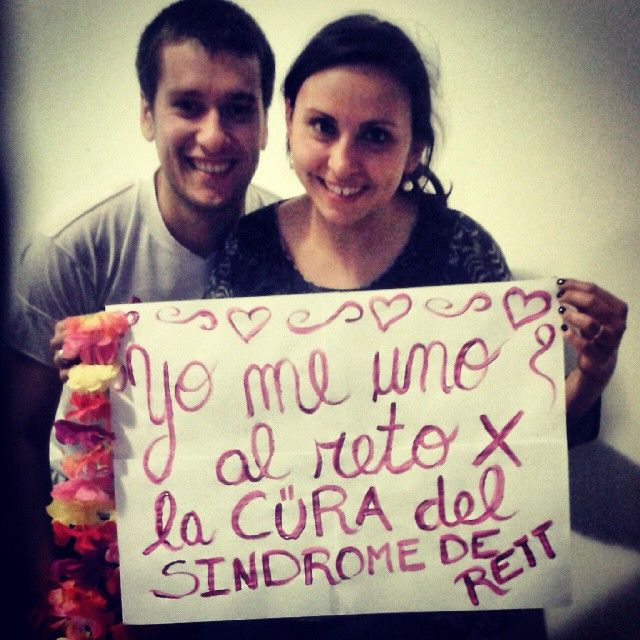 Yo me uno
al reto x
la CÜRA del
SINDROME DE
RETT